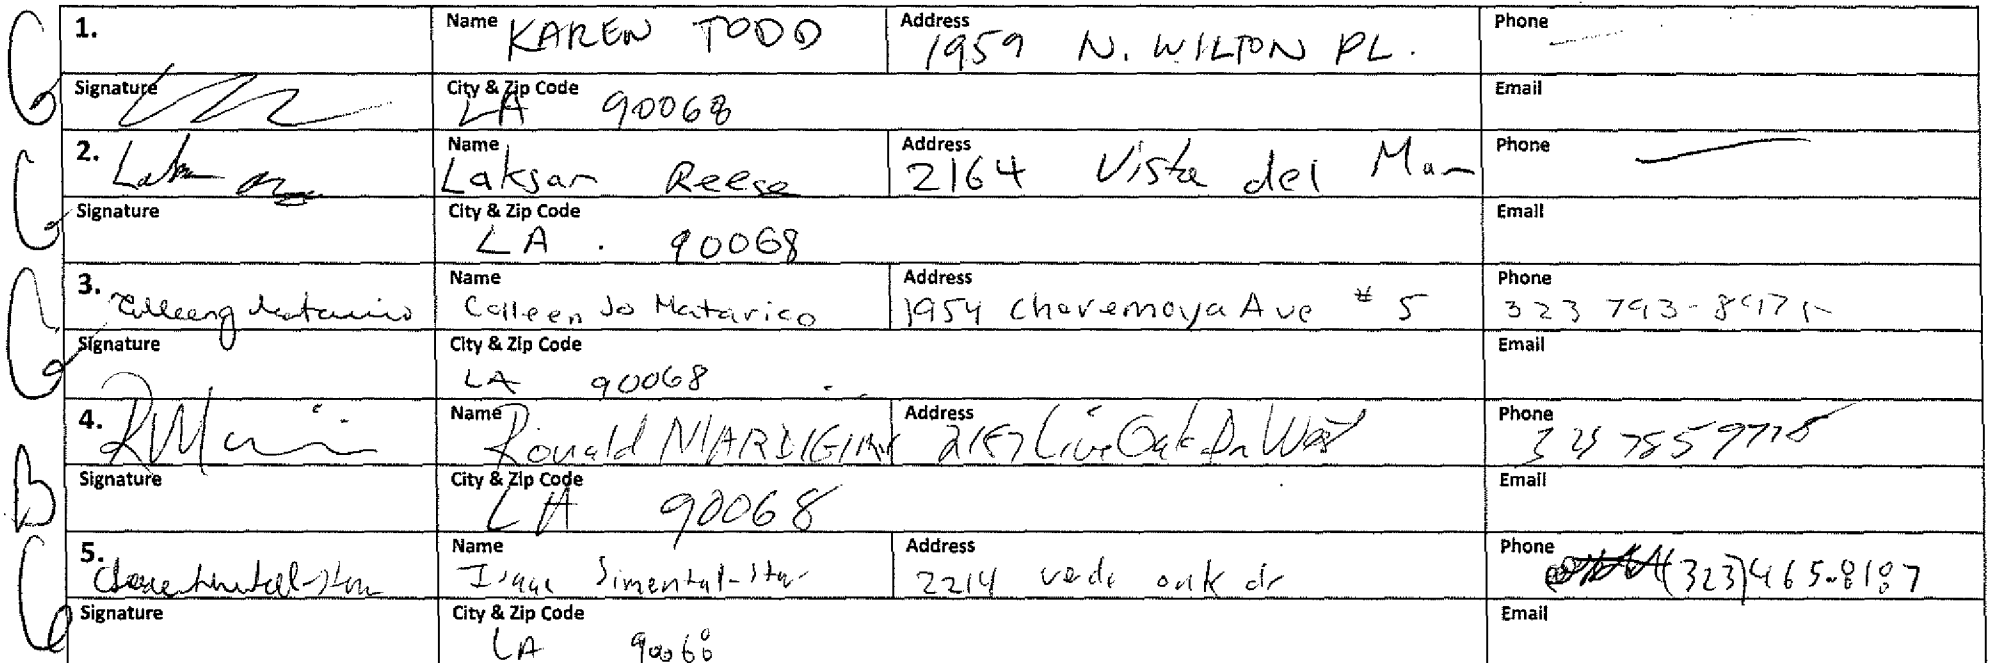 1. Name KAREN TODD Address 1959 N. WILTON PL. Phone
Signature City & Zip Code LA 90068 Email
2. Name Laksan Reese Address 2164 Vista del Mar Phone
Signature City & Zip Code LA. 90068 Email
3. Name Colleen Jo Matarico Address 1954 Cheremoya Ave # 5 Phone 323 793-
Signature City & Zip Code LA 90068 Email
4. Name Ronald MARDIGIAN Address Live Oak Dr West Phone
Signature City & Zip Code LA 90068 Email
5. Name Isaac Simental-Star Address 2214 verde oak dr Phone (323)465-8187
Signature City & Zip Code LA 90068 Email